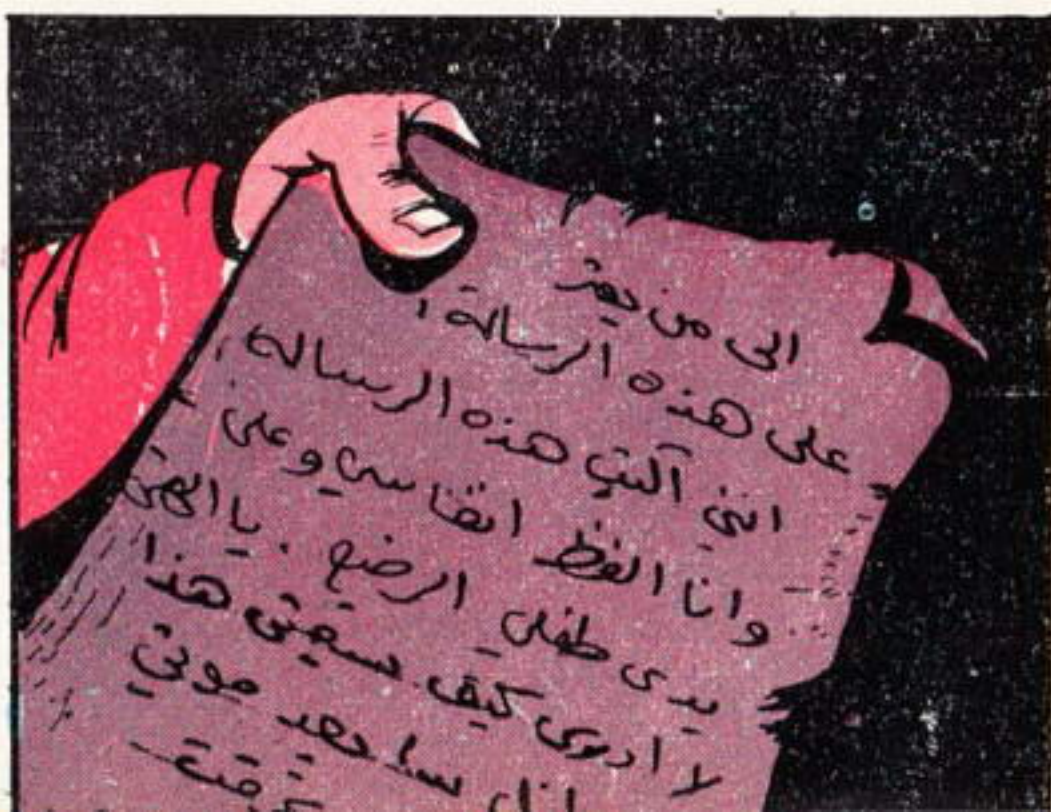 الى من يعثر
على هذه الرسالة :
انني اكتب هذه الرسالة ،
وانا الفظ انفاسي وعلى
يدي طفلي الرضيع . يا الهي
لا ادري كيف سيبقى هذا
موتي